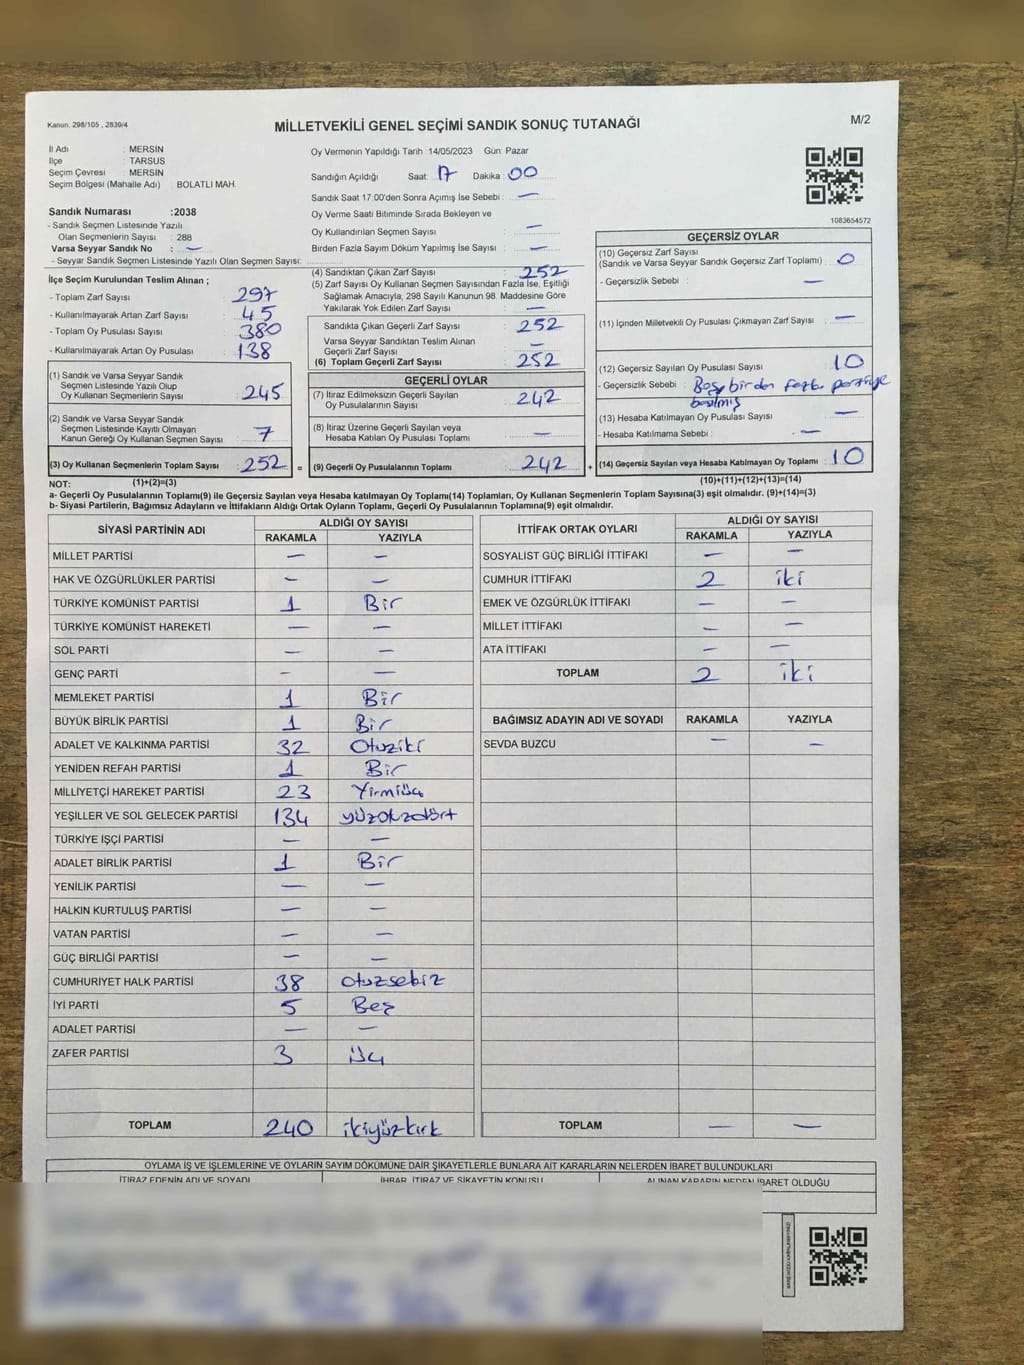 Kanun. 298/105 , 2839/4
MİLLETVEKİLİ GENEL SEÇİMİ SANDIK SONUÇ TUTANAĞI
M/2
İl Adı : MERSİN
İlçe : TARSUS
Seçim Çevresi : MERSİN
Seçim Bölgesi (Mahalle Adı) : BOLATLI MAH.
Sandık Numarası :2038
- Sandık Seçmen Listesinde Yazılı
Olan Seçmenlerin Sayısı : 288
Varsa Seyyar Sandık No : —
- Seyyar Sandık Seçmen Listesinde Yazılı Olan Seçmen Sayısı:
Oy Vermenin Yapıldığı Tarih 14/05/2023 Gün: Pazar
Sandığın Açıldığı Saat: 17 Dakika : 00
Sandık Saat 17:00'den Sonra Açımış İse Sebebi : —
Oy Verme Saati Bitiminde Sırada Bekleyen ve
Oy Kullandırılan Seçmen Sayısı : —
Birden Fazla Sayım Döküm Yapılmış İse Sayısı : —
1083654572
İlçe Seçim Kurulundan Teslim Alınan ;
- Toplam Zarf Sayısı : 297
- Kullanılmayarak Artan Zarf Sayısı : 45
- Toplam Oy Pusulası Sayısı : 380
- Kullanılmayarak Artan Oy Pusulası : 138
(1) Sandık ve Varsa Seyyar Sandık
Seçmen Listesinde Yazılı Olup
Oy Kullanan Seçmenlerin Sayısı : 245
(2) Sandık ve Varsa Seyyar Sandık
Seçmen Listesinde Kayıtlı Olmayan
Kanun Gereği Oy Kullanan Seçmen Sayısı : 7
(3) Oy Kullanan Seçmenlerin Toplam Sayısı : 252 =
(4) Sandıktan Çıkan Zarf Sayısı : 252
(5) Zarf Sayısı Oy Kullanan Seçmen Sayısından Fazla İse, Eşitliği
Sağlamak Amacıyla, 298 Sayılı Kanunun 98. Maddesine Göre
Yakılarak Yok Edilen Zarf Sayısı : —
Sandıkta Çıkan Geçerli Zarf Sayısı : 252
Varsa Seyyar Sandıktan Teslim Alınan
Geçerli Zarf Sayısı : —
(6) Toplam Geçerli Zarf Sayısı : 252
GEÇERLİ OYLAR
(7) İtiraz Edilmeksizin Geçerli Sayılan
Oy Pusulalarının Sayısı : 242
(8) İtiraz Üzerine Geçerli Sayılan veya
Hesaba Katılan Oy Pusulası Toplamı : —
(9) Geçerli Oy Pusulalarının Toplamı : 242 +
GEÇERSİZ OYLAR
(10) Geçersiz Zarf Sayısı
(Sandık ve Varsa Seyyar Sandık Geçersiz Zarf Toplamı) : 0
- Geçersizlik Sebebi : —
(11) İçinden Milletvekili Oy Pusulası Çıkmayan Zarf Sayısı : —
(12) Geçersiz Sayılan Oy Pusulası Sayısı : 10
- Geçersizlik Sebebi : Boş, birden fazla partiye
basılmış
(13) Hesaba Katılmayan Oy Pusulası Sayısı : —
- Hesaba Katılmama Sebebi : —
(14) Geçersiz Sayılan veya Hesaba Katılmayan Oy Toplamı : 10
NOT: (1)+(2)=(3)
(10)+(11)+(12)+(13)=(14)
a- Geçerli Oy Pusulalarının Toplamı(9) ile Geçersiz Sayılan veya Hesaba katılmayan Oy Toplamı(14) Toplamları, Oy Kullanan Seçmenlerin Toplam Sayısına(3) eşit olmalıdır. (9)+(14)=(3)
b- Siyasi Partilerin, Bağımsız Adayların ve İttifakların Aldığı Ortak Oyların Toplamı, Geçerli Oy Pusulalarının Toplamına(9) eşit olmalıdır.
SİYASİ PARTİNİN ADI ALDIĞI OY SAYISI
RAKAMLA YAZIYLA
MİLLET PARTİSİ — —
HAK VE ÖZGÜRLÜKLER PARTİSİ — —
TÜRKİYE KOMÜNİST PARTİSİ 1 Bir
TÜRKİYE KOMÜNİST HAREKETİ — —
SOL PARTİ — —
GENÇ PARTİ — —
MEMLEKET PARTİSİ 1 Bir
BÜYÜK BİRLİK PARTİSİ 1 Bir
ADALET VE KALKINMA PARTİSİ 32 Otuziki
YENİDEN REFAH PARTİSİ 1 Bir
MİLLİYETÇİ HAREKET PARTİSİ 23 Yirmiüç
YEŞİLLER VE SOL GELECEK PARTİSİ 134 yüzotuzdört
TÜRKİYE İŞÇİ PARTİSİ — —
ADALET BİRLİK PARTİSİ 1 Bir
YENİLİK PARTİSİ — —
HALKIN KURTULUŞ PARTİSİ — —
VATAN PARTİSİ — —
GÜÇ BİRLİĞİ PARTİSİ — —
CUMHURİYET HALK PARTİSİ 38 otuzsekiz
İYİ PARTİ 5 Beş
ADALET PARTİSİ — —
ZAFER PARTİSİ 3 üç
TOPLAM 240 ikiyüzkırk
İTTİFAK ORTAK OYLARI ALDIĞI OY SAYISI
RAKAMLA YAZIYLA
SOSYALİST GÜÇ BİRLİĞİ İTTİFAKI — —
CUMHUR İTTİFAKI 2 iki
EMEK VE ÖZGÜRLÜK İTTİFAKI — —
MİLLET İTTİFAKI — —
ATA İTTİFAKI — —
TOPLAM 2 iki
BAĞIMSIZ ADAYIN ADI VE SOYADI RAKAMLA YAZIYLA
SEVDA BUZCU — —
TOPLAM — —
OYLAMA İŞ VE İŞLEMLERİNE VE OYLARIN SAYIM DÖKÜMÜNE DAİR ŞİKAYETLERLE BUNLARA AİT KARARLARIN NELERDEN İBARET BULUNDUKLARI
İTİRAZ EDENİN ADI VE SOYADI İHBAR, İTİRAZ VE ŞİKAYETİN KONUSU ALINAN KARARIN NEDEN İBARET OLDUĞU